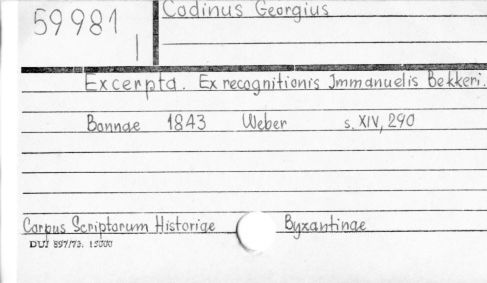 59981
I
Codinus Georgius
Excerpta. Ex recognitionis Immanuelis Bekkeri.
Bonnae 1843 Weber s. XIV, 290
Corpus Scriptorum Historiae Byzantinae
DUJ 897/73. 15000